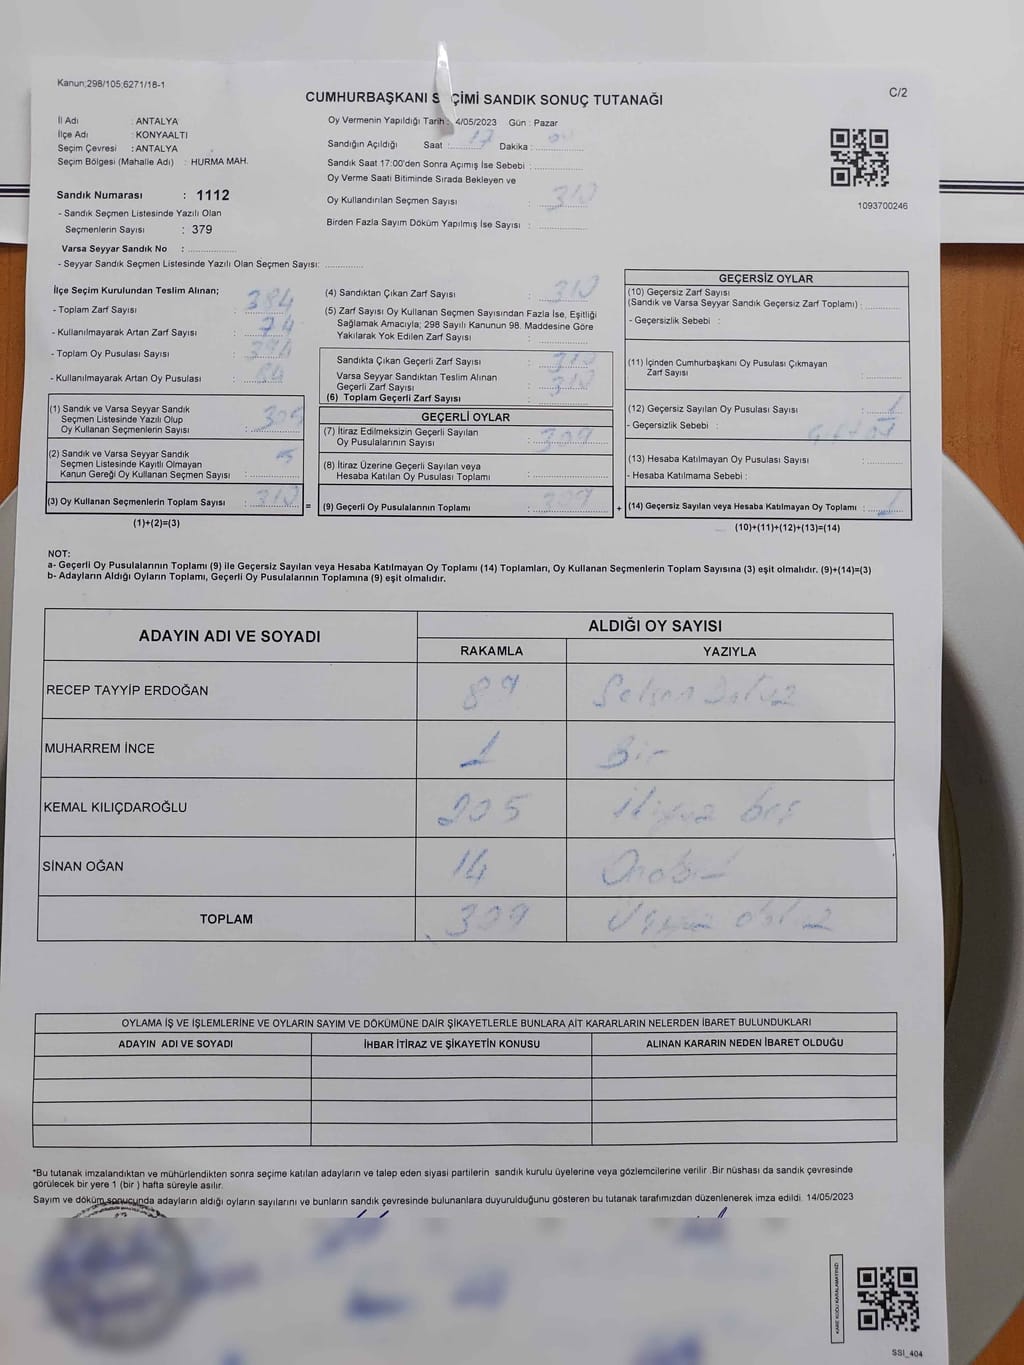 Kanun;298/105;6271/18-1
C/2
CUMHURBAŞKANI S ÇİMİ SANDIK SONUÇ TUTANAĞI
İl Adı : ANTALYA
İlçe Adı : KONYAALTI
Seçim Çevresi : ANTALYA
Seçim Bölgesi (Mahalle Adı) : HURMA MAH.
Sandık Numarası : 1112
- Sandık Seçmen Listesinde Yazılı Olan
Seçmenlerin Sayısı : 379
Varsa Seyyar Sandık No :
- Seyyar Sandık Seçmen Listesinde Yazılı Olan Seçmen Sayısı:
Oy Vermenin Yapıldığı Tarih : 4/05/2023 Gün : Pazar
Sandığın Açıldığı Saat : 17 Dakika :
Sandık Saat 17:00'den Sonra Açımış İse Sebebi :
Oy Verme Saati Bitiminde Sırada Bekleyen ve
Oy Kullandırılan Seçmen Sayısı : 310
Birden Fazla Sayım Döküm Yapılmış İse Sayısı :
1093700246
İlçe Seçim Kurulundan Teslim Alınan;
- Toplam Zarf Sayısı : 384
- Kullanılmayarak Artan Zarf Sayısı : 74
- Toplam Oy Pusulası Sayısı : 394
- Kullanılmayarak Artan Oy Pusulası : 84
(1) Sandık ve Varsa Seyyar Sandık
Seçmen Listesinde Yazılı Olup
Oy Kullanan Seçmenlerin Sayısı : 305
(2) Sandık ve Varsa Seyyar Sandık
Seçmen Listesinde Kayıtlı Olmayan
Kanun Gereği Oy Kullanan Seçmen Sayısı : 5
(3) Oy Kullanan Seçmenlerin Toplam Sayısı : 310 =
(1)+(2)=(3)
(4) Sandıktan Çıkan Zarf Sayısı : 310
(5) Zarf Sayısı Oy Kullanan Seçmen Sayısından Fazla İse, Eşitliği
Sağlamak Amacıyla; 298 Sayılı Kanunun 98. Maddesine Göre
Yakılarak Yok Edilen Zarf Sayısı :
Sandıkta Çıkan Geçerli Zarf Sayısı : 310
Varsa Seyyar Sandıktan Teslim Alınan
Geçerli Zarf Sayısı : 310
(6) Toplam Geçerli Zarf Sayısı :
GEÇERLİ OYLAR
(7) İtiraz Edilmeksizin Geçerli Sayılan
Oy Pusulalarının Sayısı : 309
(8) İtiraz Üzerine Geçerli Sayılan veya
Hesaba Katılan Oy Pusulası Toplamı :
(9) Geçerli Oy Pusulalarının Toplamı : 309 +
GEÇERSİZ OYLAR
(10) Geçersiz Zarf Sayısı
(Sandık ve Varsa Seyyar Sandık Geçersiz Zarf Toplamı) :
- Geçersizlik Sebebi :
(11) İçinden Cumhurbaşkanı Oy Pusulası Çıkmayan
Zarf Sayısı :
(12) Geçersiz Sayılan Oy Pusulası Sayısı : 1
- Geçersizlik Sebebi :
(13) Hesaba Katılmayan Oy Pusulası Sayısı :
- Hesaba Katılmama Sebebi :
(14) Geçersiz Sayılan veya Hesaba Katılmayan Oy Toplamı : 1
(10)+(11)+(12)+(13)=(14)
NOT:
a- Geçerli Oy Pusulalarının Toplamı (9) ile Geçersiz Sayılan veya Hesaba Katılmayan Oy Toplamı (14) Toplamları, Oy Kullanan Seçmenlerin Toplam Sayısına (3) eşit olmalıdır. (9)+(14)=(3)
b- Adayların Aldığı Oyların Toplamı, Geçerli Oy Pusulalarının Toplamına (9) eşit olmalıdır.
ADAYIN ADI VE SOYADI ALDIĞI OY SAYISI
RAKAMLA YAZIYLA
RECEP TAYYİP ERDOĞAN 89
MUHARREM İNCE 1 Bir
KEMAL KILIÇDAROĞLU 205 ikiyüz beş
SİNAN OĞAN 14
TOPLAM 309 Üçyüz dokuz
OYLAMA İŞ VE İŞLEMLERİNE VE OYLARIN SAYIM VE DÖKÜMÜNE DAİR ŞİKAYETLERLE BUNLARA AİT KARARLARIN NELERDEN İBARET BULUNDUKLARI
ADAYIN ADI VE SOYADI İHBAR İTİRAZ VE ŞİKAYETİN KONUSU ALINAN KARARIN NEDEN İBARET OLDUĞU
*Bu tutanak imzalandıktan ve mühürlendikten sonra seçime katılan adayların ve talep eden siyasi partilerin sandık kurulu üyelerine veya gözlemcilerine verilir .Bir nüshası da sandık çevresinde
görülecek bir yere 1 (bir ) hafta süreyle asılır.
Sayım ve döküm sonucunda adayların aldığı oyların sayılarını ve bunların sandık çevresinde bulunanlara duyurulduğunu gösteren bu tutanak tarafımızdan düzenlenerek imza edildi. 14/05/2023
KARE KODU KARALAMAYINIZ!
SSI_404